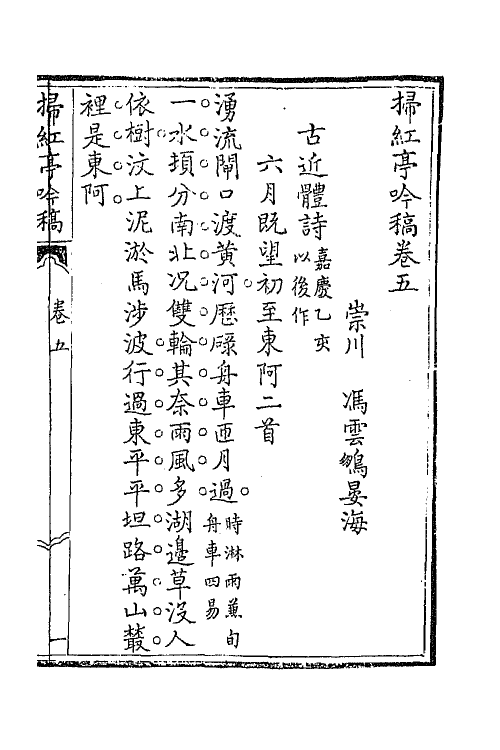 掃紅亭吟稿卷五
崇川　馮雲鵷晏海
古近體詩嘉慶乙亥以後作
六月既望初至東阿二首
湧流閘口渡黃河歷碌舟車匝月過時淋雨蒹旬舟車四易
一水頂分南北况雙輪其奈雨風多湖邉草没人
依樹汶上泥淤馬涉波行過東平平坦路萬山叢
裡是東阿
掃紅亭吟稿
卷五